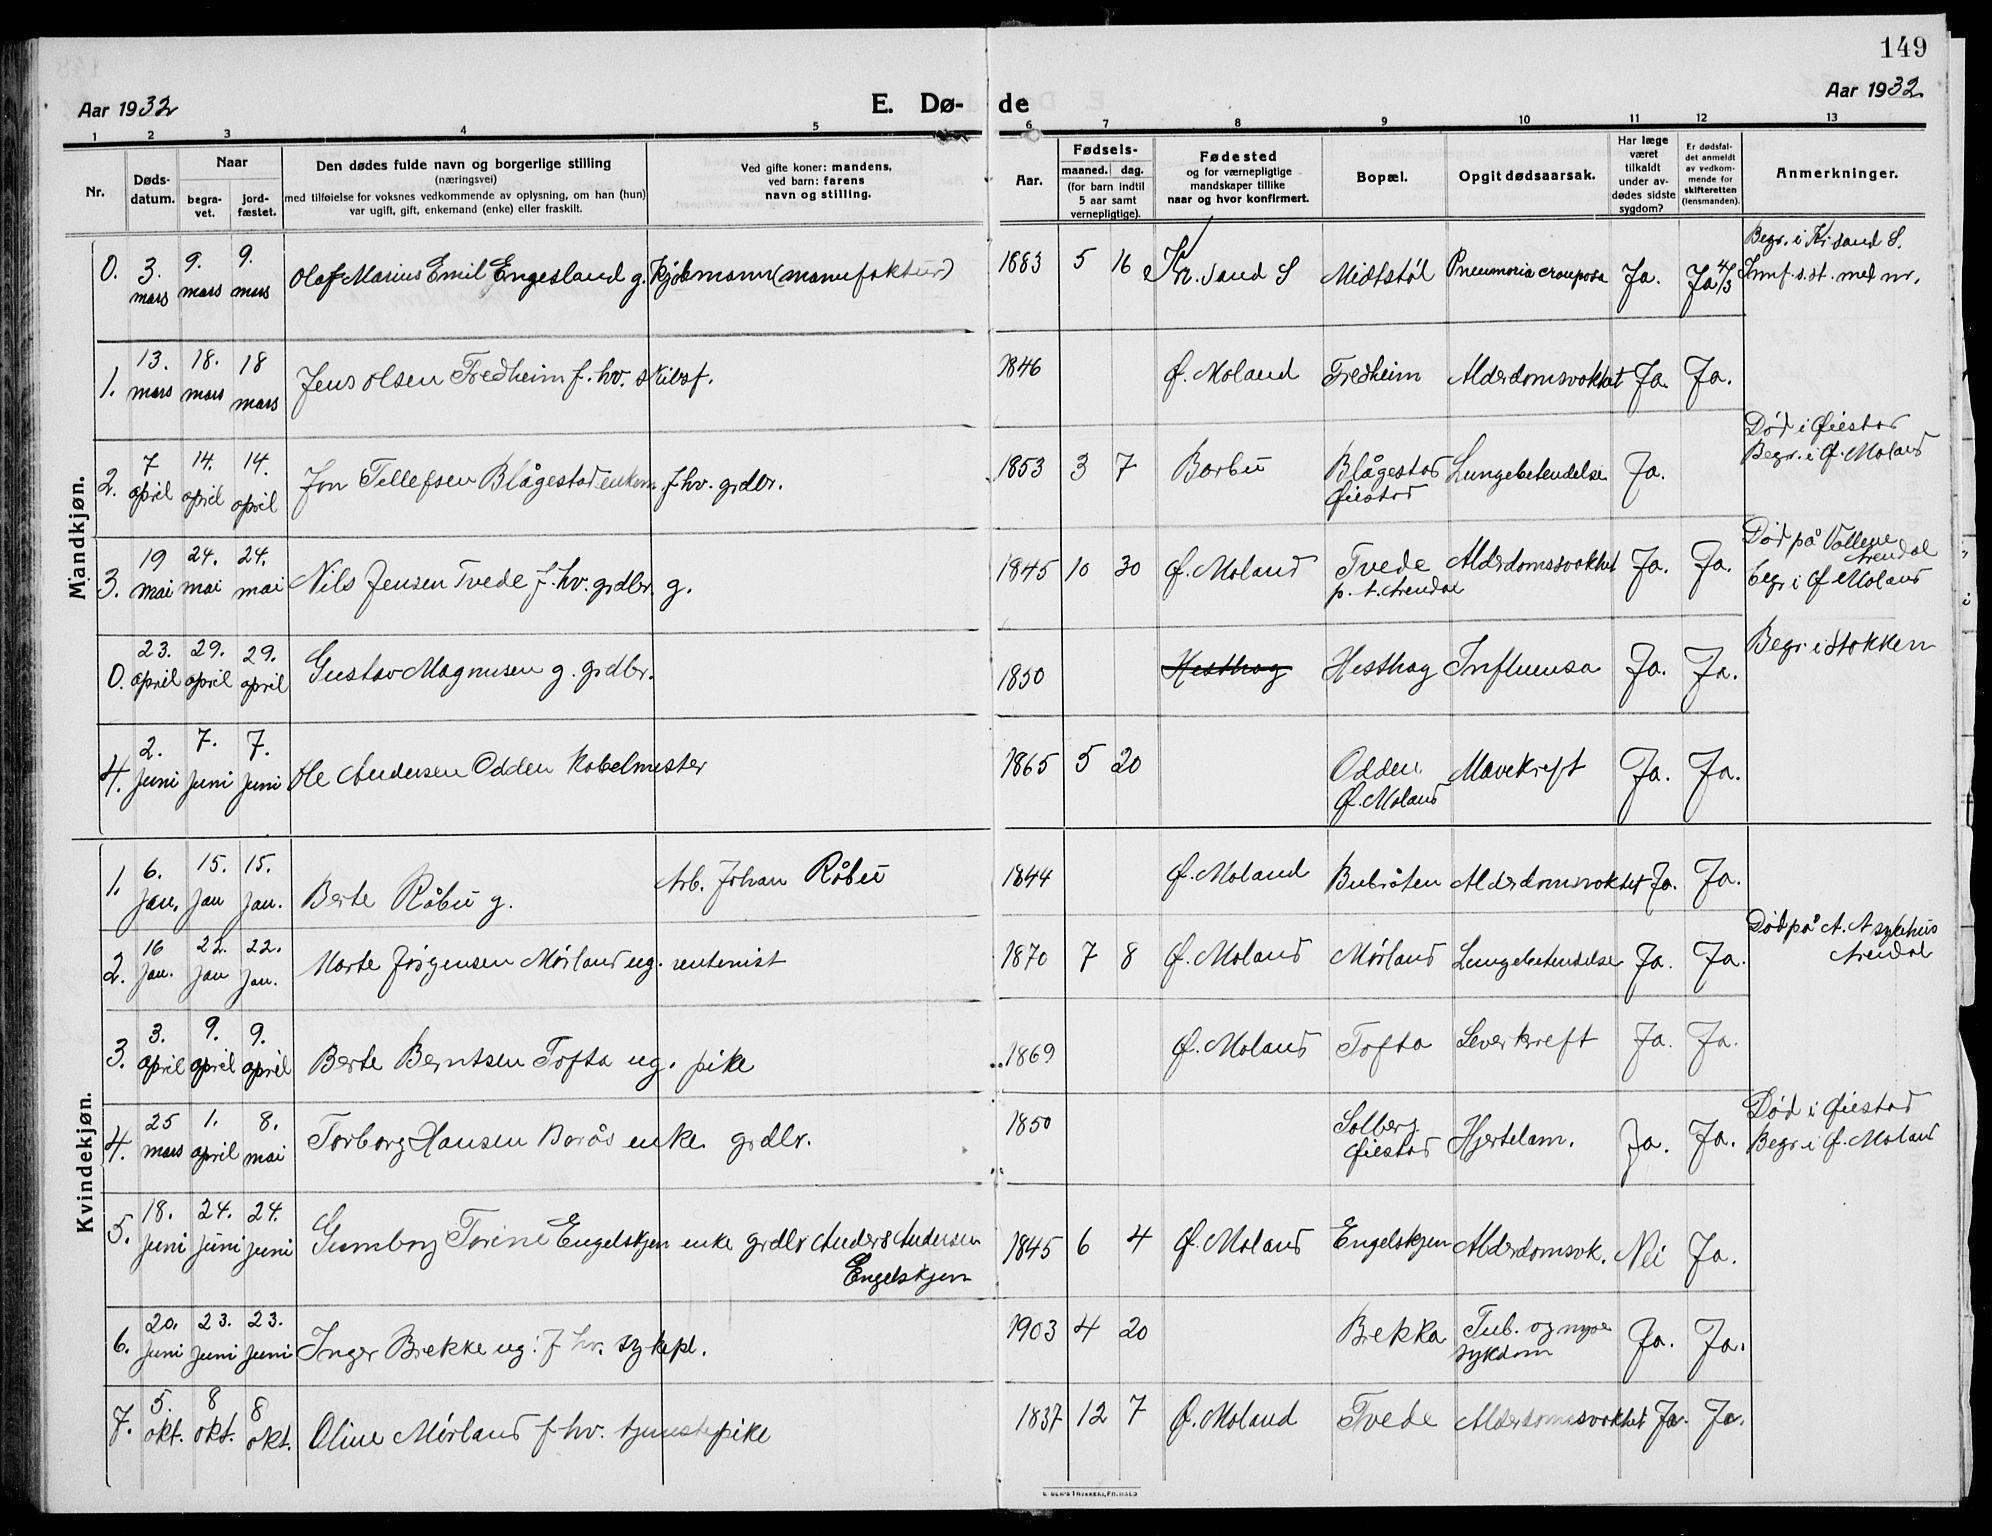 149
Aar 1932
E. Dø-
de
Aar 1932
1 2 3 4 5 6 7 8 9 10 11 12 13
Nr.
Døds-
datum.
Naar
begra-
vet.
jord-
fæstet.
Den dødes fulde navn og borgerlige stilling
(næringsvei)
med tilføielse for voksnes vedkommende av oplysning, om han (hun)
var ugift, gift, enkemand (enke) eller fraskilt.
Ved gifte koner: mandens,
ved barn: farens
navn og stilling.
Fødsels-
Aar.
maaned. dag.
(for barn indtil
5 aar samt
vernepligtige).
Fødested
og for værnepligtige
mandskaper tillike
naar og hvor konfirmert.
Bopæl.
Opgit dødsaarsak.
Har læge
været
tilkaldt
under av-
dødes sidste
sygdom?
Er dødsfal-
det anmeldt
av vedkom-
mende for
skifteretten
(lensmanden).
Anmerkninger.
Mandkjøn.
0. 3. mars 9. mars 9. mars Olaf Marius Emil Engesland g. Kjøbmann (manufaktur) 1883 5 16 Kr. sand S Midtstøl Pneumonia crouposa Ja. Ja 4/3 Begr. i Kr. sand S.
Innf. s. st. med nr.
1. 13. mars 18. mars 18 mars Jens Olsen Fredheim f. hv. skibsf. 1846 Ø. Moland Fredheim Alderdomsvakhet Ja. Ja.
2. 7 april 14. april 14. april Jon Tellefsen Blågestad enkem. f. hv. grdbr. 1853 3 7 Barbu Blågestad
Øiestad Lungebetendelse Ja. Død i Øiestad
Begr. i Ø. Moland
3. 19 mai 24. mai 24. mai Nils Jensen Tvede f. hv. grdbr. g. 1845 10 30 Ø. Moland Tvede
p. t. Arendal Alderdomssvakhet Ja. Ja. Død på Vollene
Arendal
begr i Ø Moland
0. 23. april 29. april 29. april Gustav Magnusen g. grdbr. 1850 Hesthag Hesthag Influensa Ja. Ja. Begr. i Stokken
4. 2. juni 7. juni 7. juni Ole Andersen Odden kabelmester 1865 5 20 Odden
Ø. Moland Mavekreft Ja. Ja.
Kvindekjøn.
1. 6. jan. 15. jan 15. jan. Berte Råbu g. Arb. Johan Råbu 1844 Ø. Moland Bubråten Alderdomsvakhet Ja. Ja.
2. 16 jan. 22. jan 22. jan. Marte Jørgensen Mørland ug. rentenist 1870 7 8 Ø. Moland Mørland Lungebetendelse Ja. Ja. Død på A. A sykehus
Arendal
3. 3. april 9. april 9. april Berte Berntsen Tofta ug. pike 1869 Ø. Moland Tofta Leverkreft Ja. Ja.
4. 25 mars 1. april 8. mai Torborg Hansen Borås enke grdbr. 1850 Solberg
Øiestad Hjertelam. Ja. Ja. Død i Øiestad
Begr. i Ø. Moland
5. 18. juni 24. juni 24. juni Gumborg Torine Engelskjen enke grdbr Anders Andersen
Engelskjen 1845 6 4 Ø. Moland Engelskjen Alderdomsvk. Nei Ja.
6. 20. juni 23. juni 23. juni Inger Brekke ug. f hv. sykepl. 1903 4 20 Brekka Tub. og nyre
sykdom Ja. Ja.
7. 5. okt. 8 okt. 8 okt. Oline Mørland f. hv. tjenestepike 1837 12 7 Ø. Moland Tvede Alderdomssvakhet Ja. Ja.